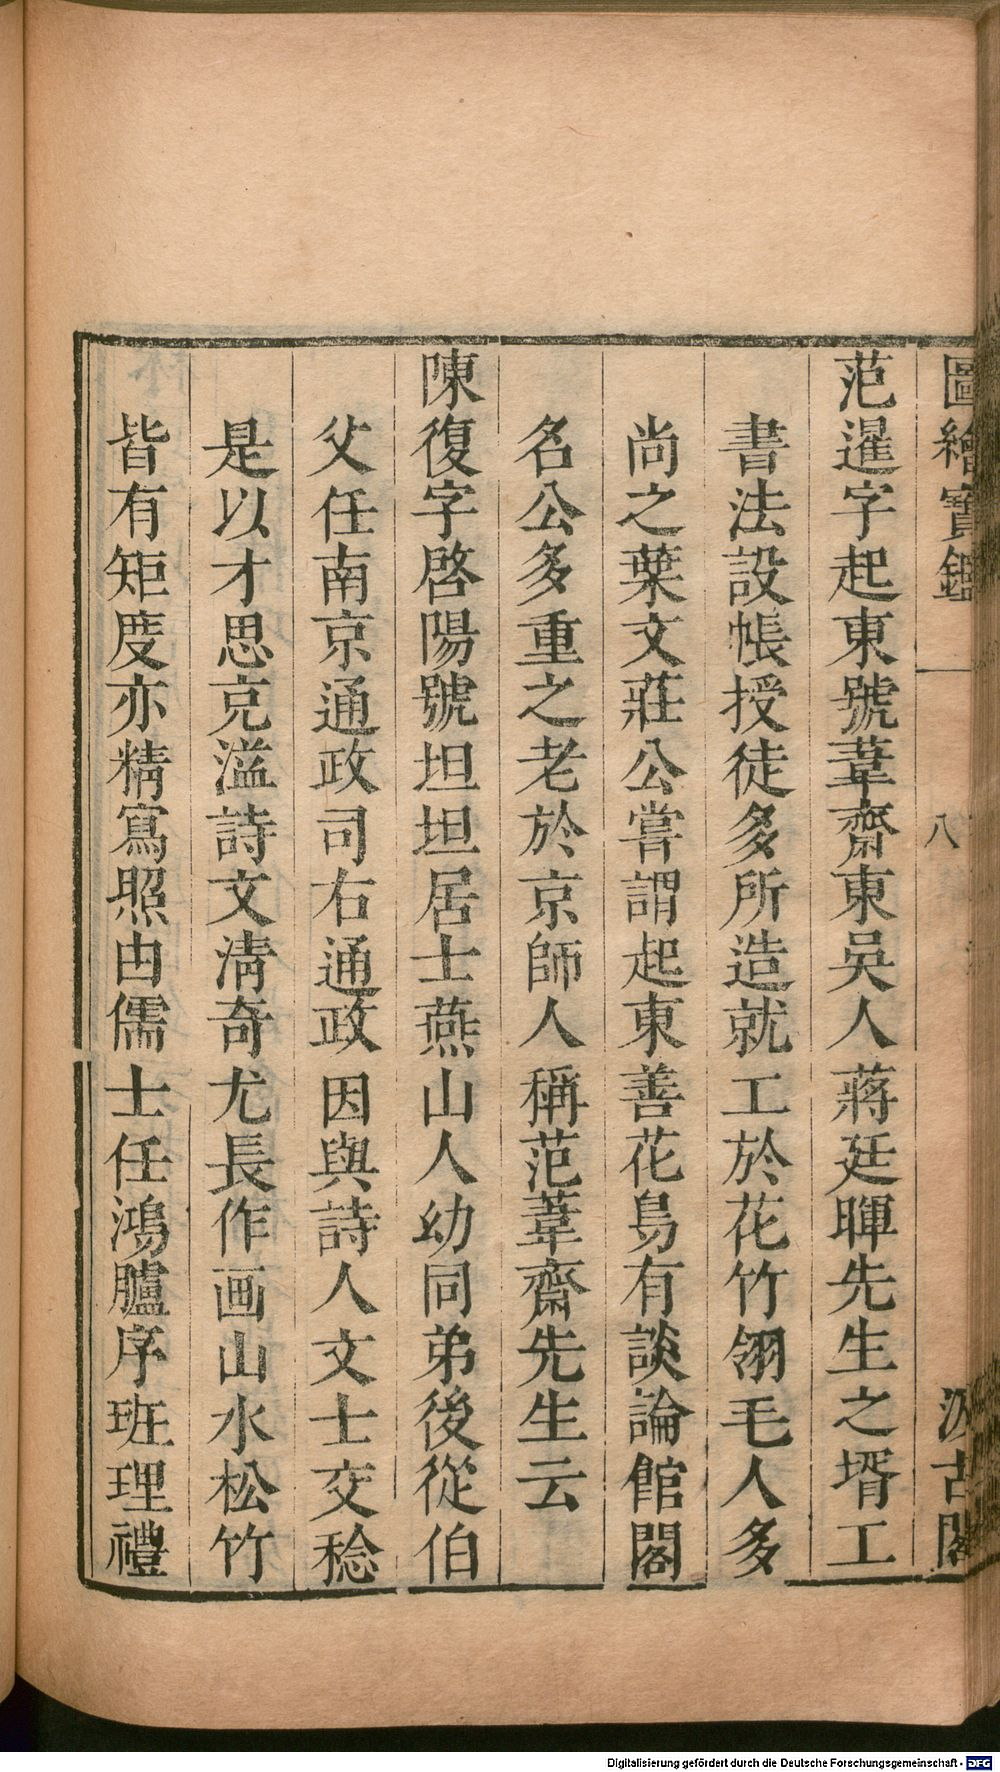 圖繪寶鑑
八
汲古閣
范暹字起東號葦齋東吳人蔣廷暉先生之壻工
書法設帳授徒多所造就工於花竹翎毛人多
尚之葉文莊公嘗謂起東善花鳥有談論館閣
名公多重之老於京師人稱范葦齋先生云
陳復字啓陽號坦坦居士燕山人幼同弟後從伯
父任南京通政司右通政因與詩人文士交稔
是以才思克溢詩文清奇尤長作画山水松竹
皆有矩度亦精寫照由儒士任鴻臚序班理禮
Digitalisierung gefördert durch die Deutsche Forschungsgemeinschaft - DFG